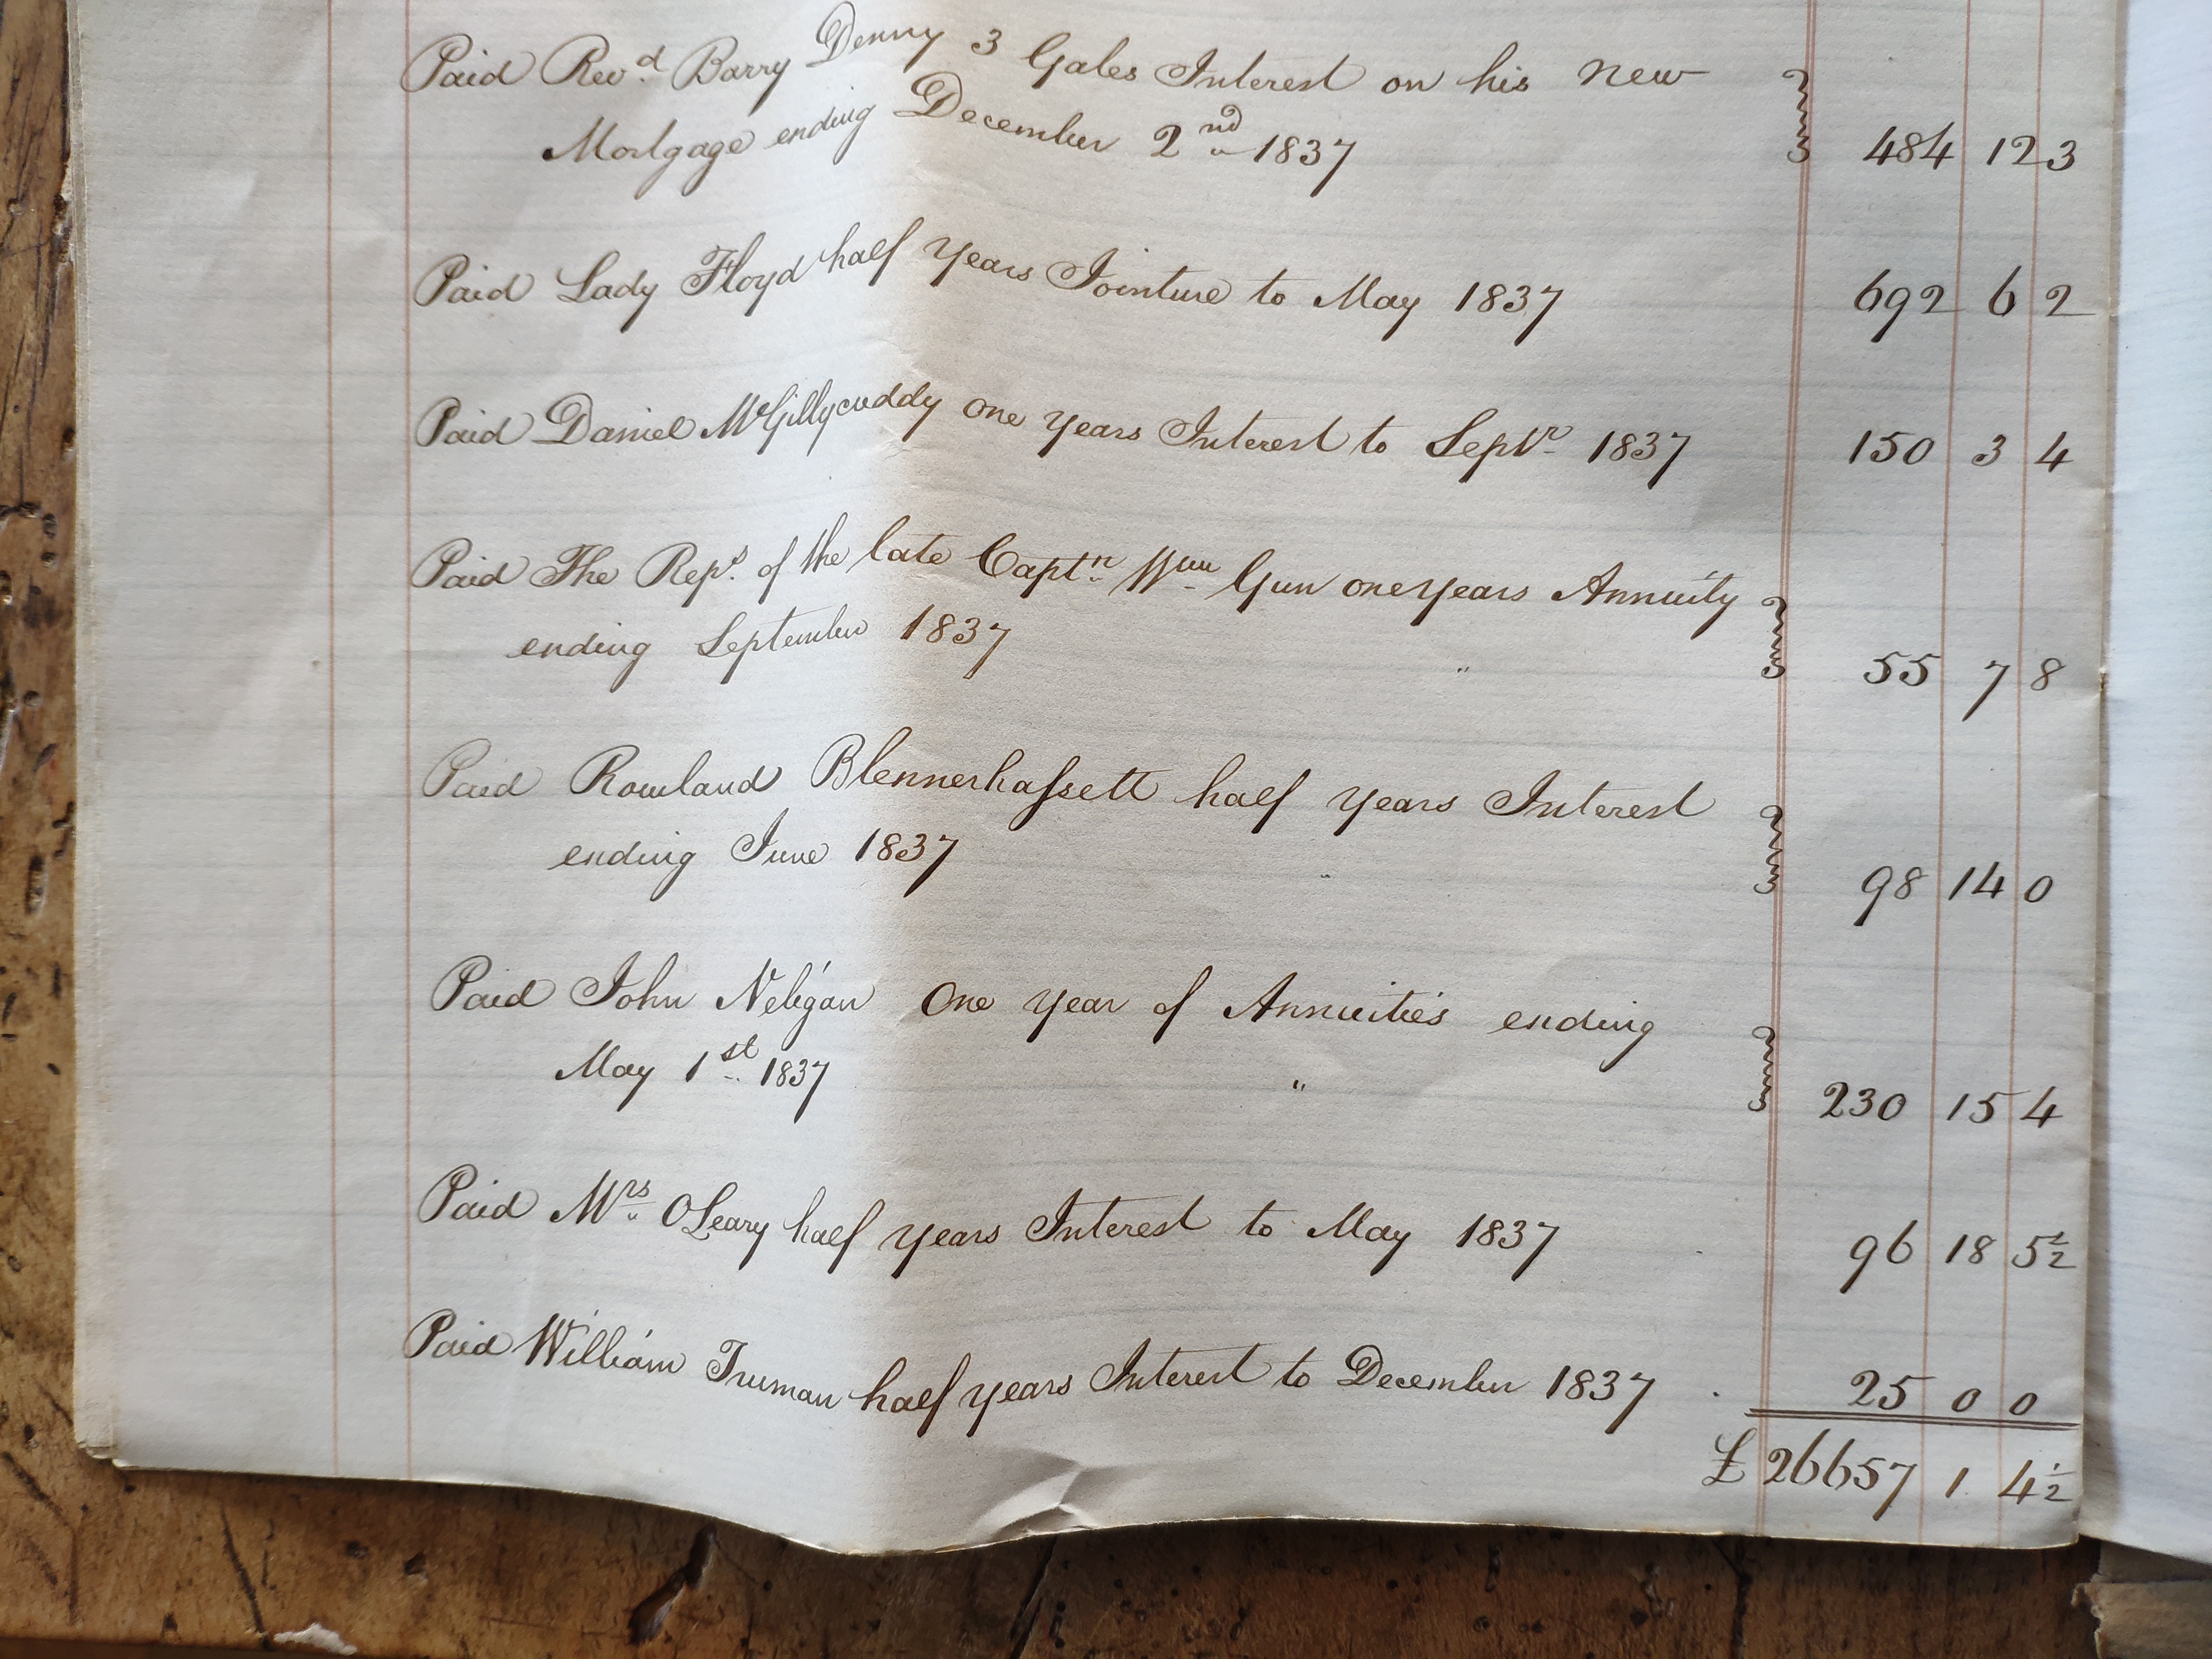 Paid Revd. Barry Denny 3 Gales Interest on his New
Mortgage ending December 2nd 1837 484 12 3
Paid Lady Floyd half years Jointure to May 1837 692 6 2
Paid Daniel McGillycuddy one years Interest to Septr 1837 150 3 4
Paid The Reps. of the late Captn Wm Gun one years Annuity
ending September 1837 " 55 7 8
Paid Rowland Blennerhaſsett half years Interest
ending June 1837 " 98 14 0
Paid John Neligan One year of Annuities ending
May 1st 1837 " 230 15 4
Paid Mrs OLeary half years Interest to May 1837 96 18 5½
Paid William Truman half years Interest to December 1837 25 0 0
£ 26657 1 4½